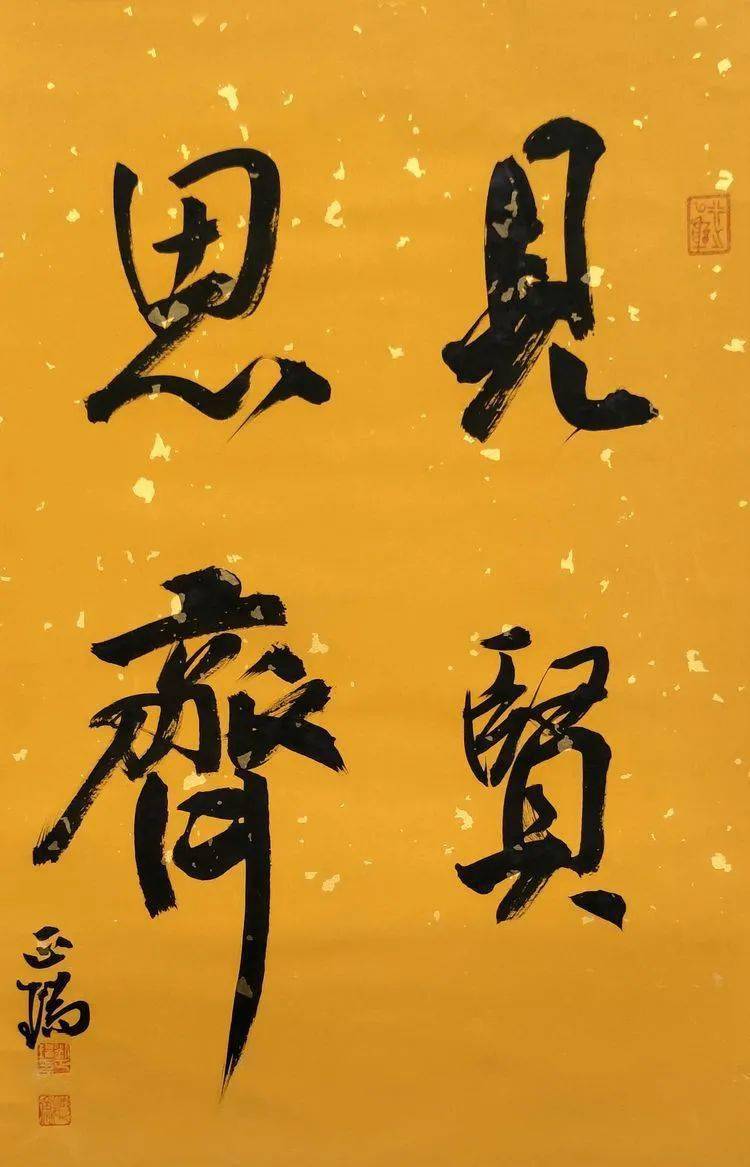 見賢
思齊
正瑞